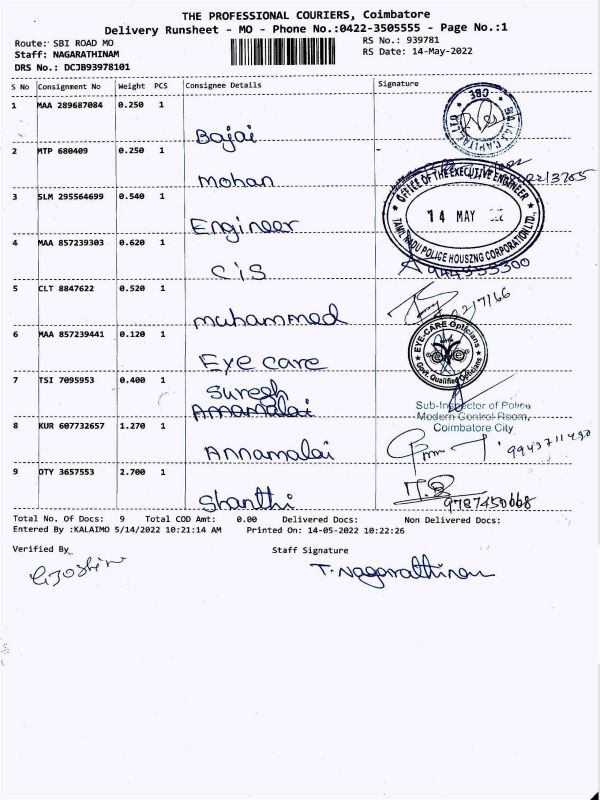 THE PROFESSIONAL COURIERS, Coimbatore
Delivery Runsheet - MO - Phone No.:0422-3505555 - Page No.:1
Route: SBI ROAD MO
RS No.: 939781
Staff: NAGARATHINAM
RS Date: 14-May-2022
DRS No.: DCJB93978101
S No Consignment No Weight PCS Consignee Details Signature
1 MAA 289687084 0.250 1 Bajai
BAJAJ CAPITAL LTD. CBE
2 MTP 680409 0.250 1 Mohan
3 SLM 295564699 0.540 1 Engineer
OFFICE OF THE EXECUTIVE ENGINEER
14 MAY
TAMIL NADU POLICE HOUSZNG CORPORATION LTD.,
4 MAA 857239303 0.620 1 CiS
5 CLT 8847622 0.520 1 muhammed
6 MAA 857239441 0.120 1 Eye care
EYE-CARE Opticians
Govt. Qualified Opticians
7 TSI 7095953 0.400 1 Suresh
Annamalai
Sub-Inspector of Police
Modern Control Room,
Coimbatore City.
8 KUR 607732657 1.270 1 Annamalai
9 DTY 3657553 2.700 1 Shanthi
Total No. Of Docs: 9 Total COD Amt: 0.00 Delivered Docs: Non Delivered Docs:
Entered By :KALAIMO 5/14/2022 10:21:14 AM Printed On: 14-05-2022 10:22:26
Verified By
Staff Signature
T. Nagarathinam